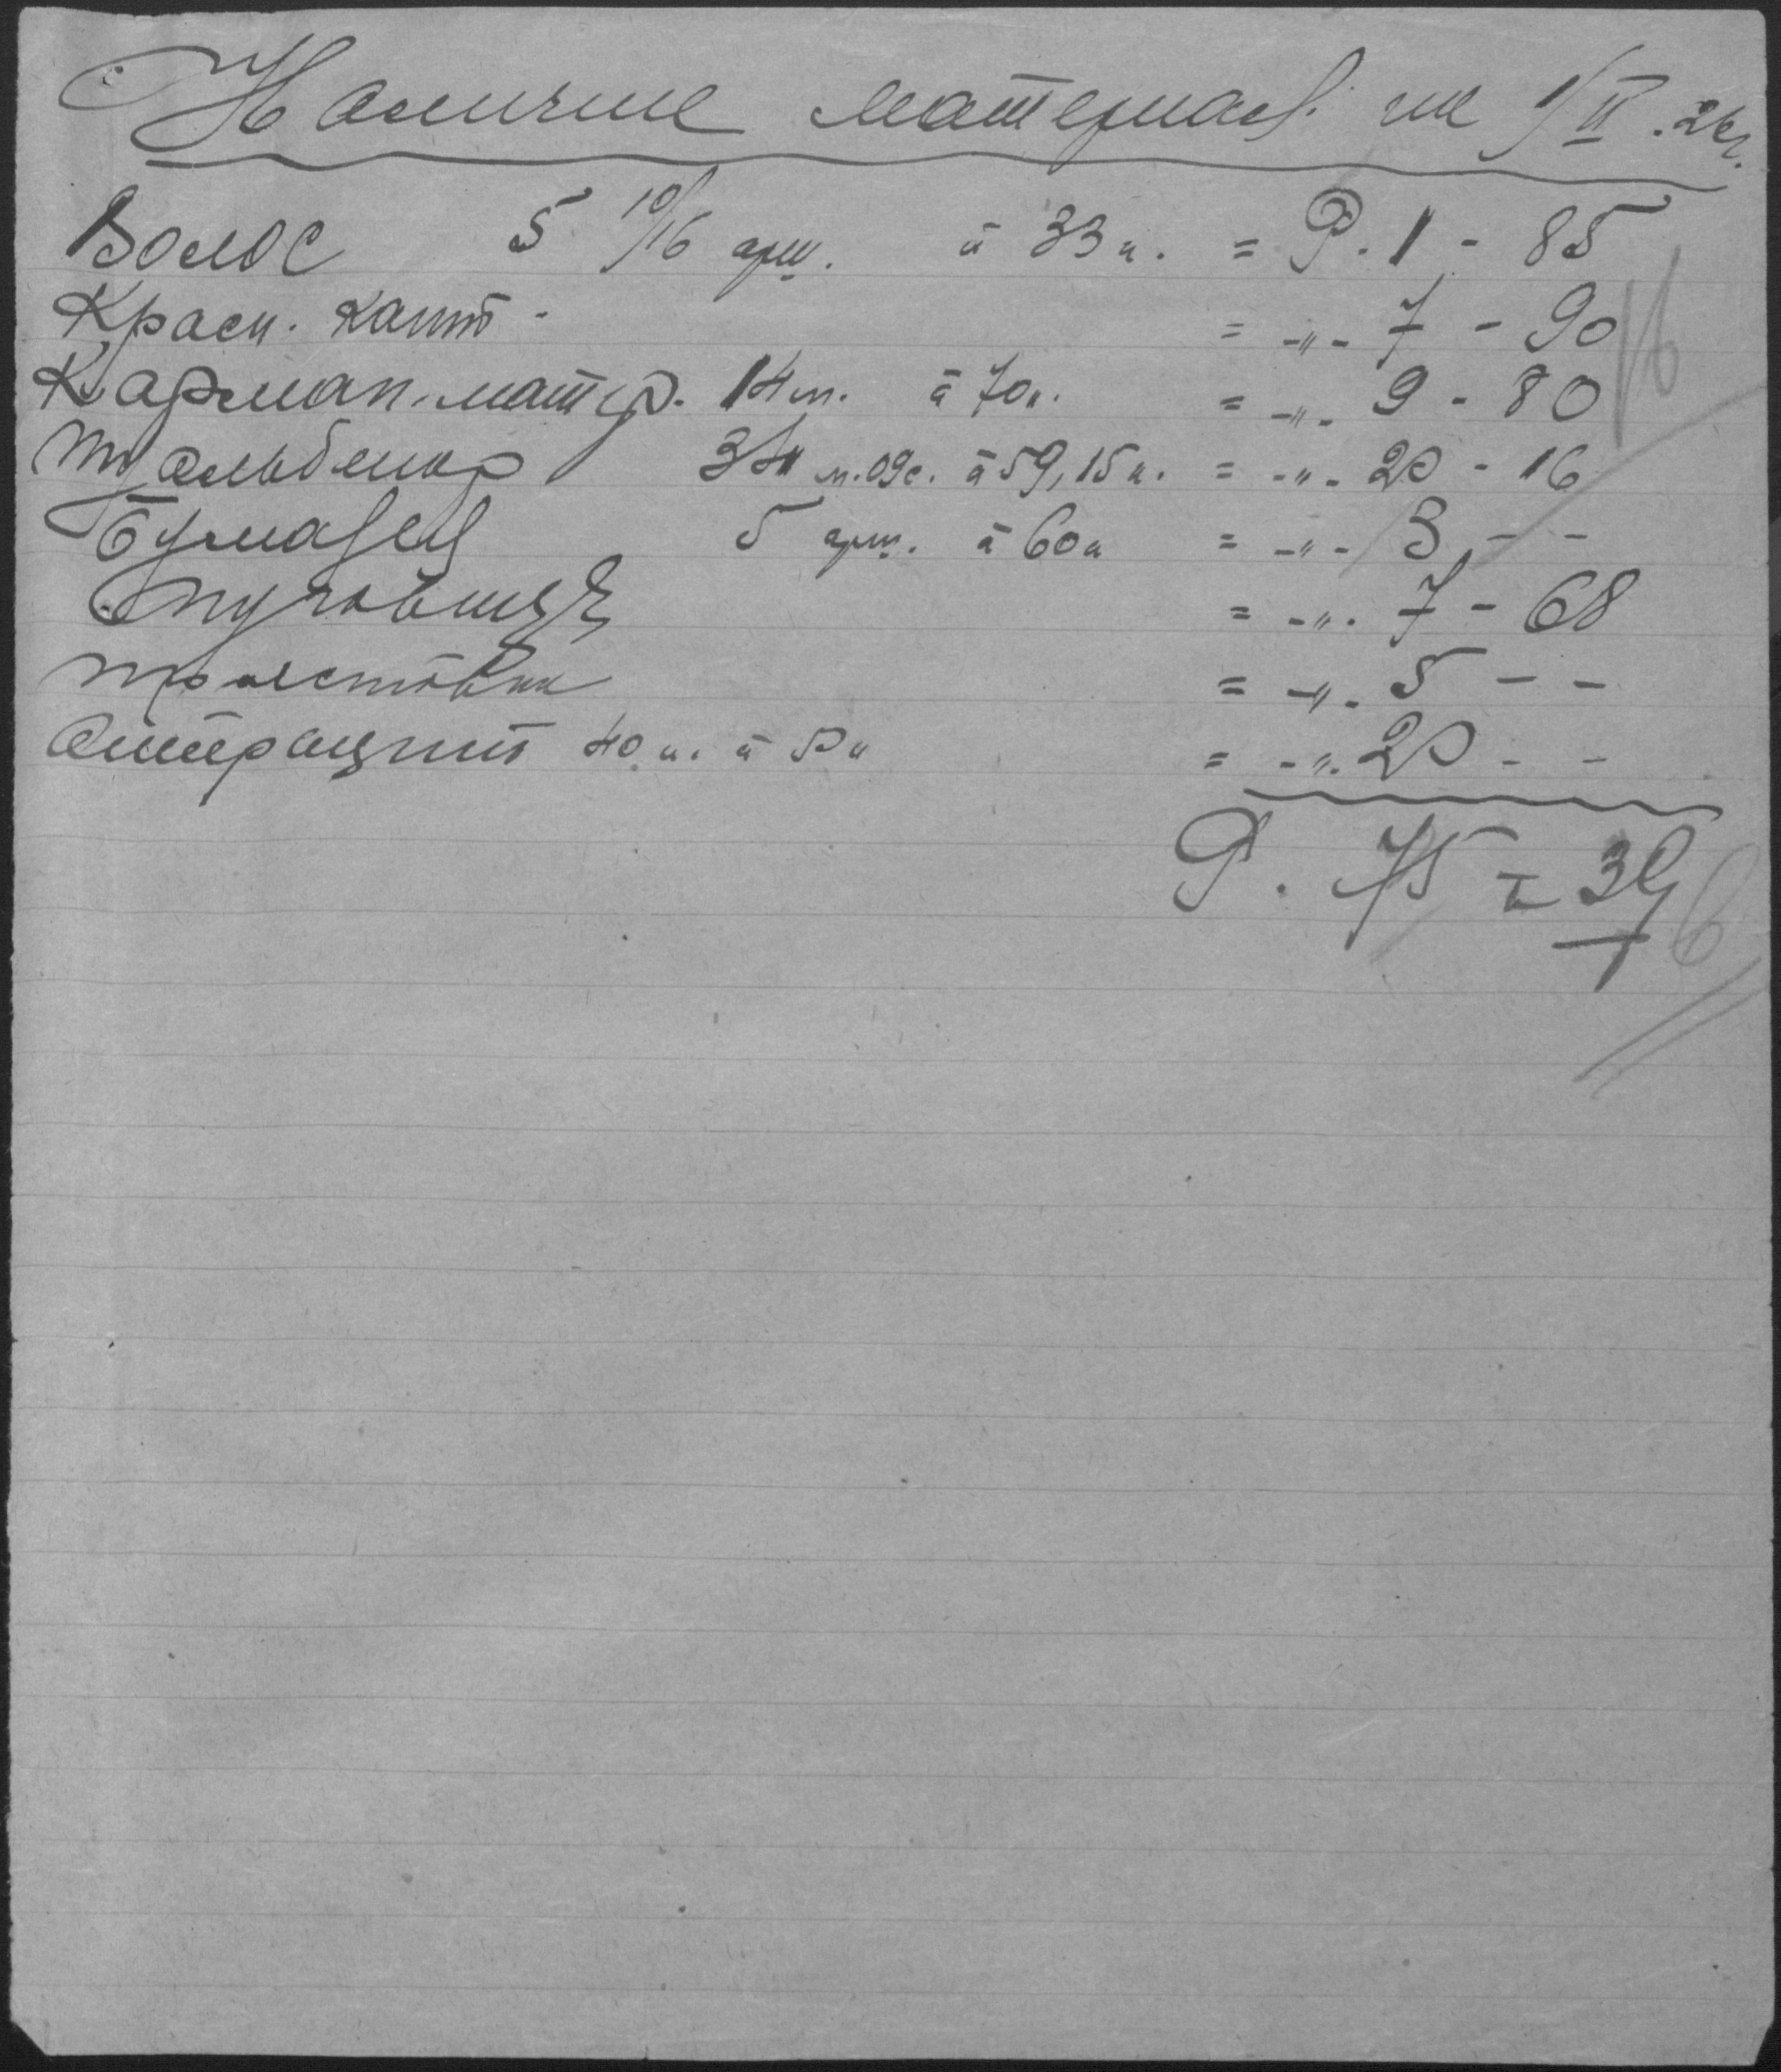 Наличие материал. на 1/II.26г.
Волос 5 10/16 арш. à 33 к. = Р. 1 - 85
Красн. кант - = -"- 7 - 90
Карман. матер. 14 м. à 70 к. = -"- 9 - 80
34 м. 09 с. à 59,15 к. = -"- 20 - 16
Бумазей 5 арш. à 60 к = -"- 3 - -
Пуговицы = -"- 7 - 68
Толстовки = -"- 5 - -
Антрацит 40 п. à 50 к = -"- 20 - -
Р. 75 = 39